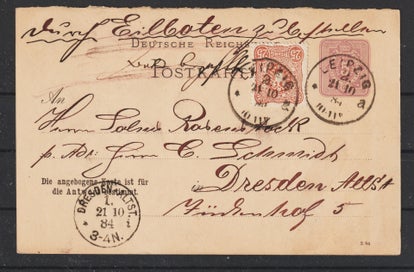 durch Eilboten zu bestellen
DEUTSCHE REICHS
POSTKARTE
25
PFENNIG
LEIPZIG
2
21 10
84
LEIPZIG
2
21 10
84
a
An
Herrn
p. Adr. Herrn C. Schmidt
Dresden Altst
5
Die angebogene Karte ist für
die Antwort bestimmt.
DRESDEN ALTST.
1.
21 10
84 i
3-4N.